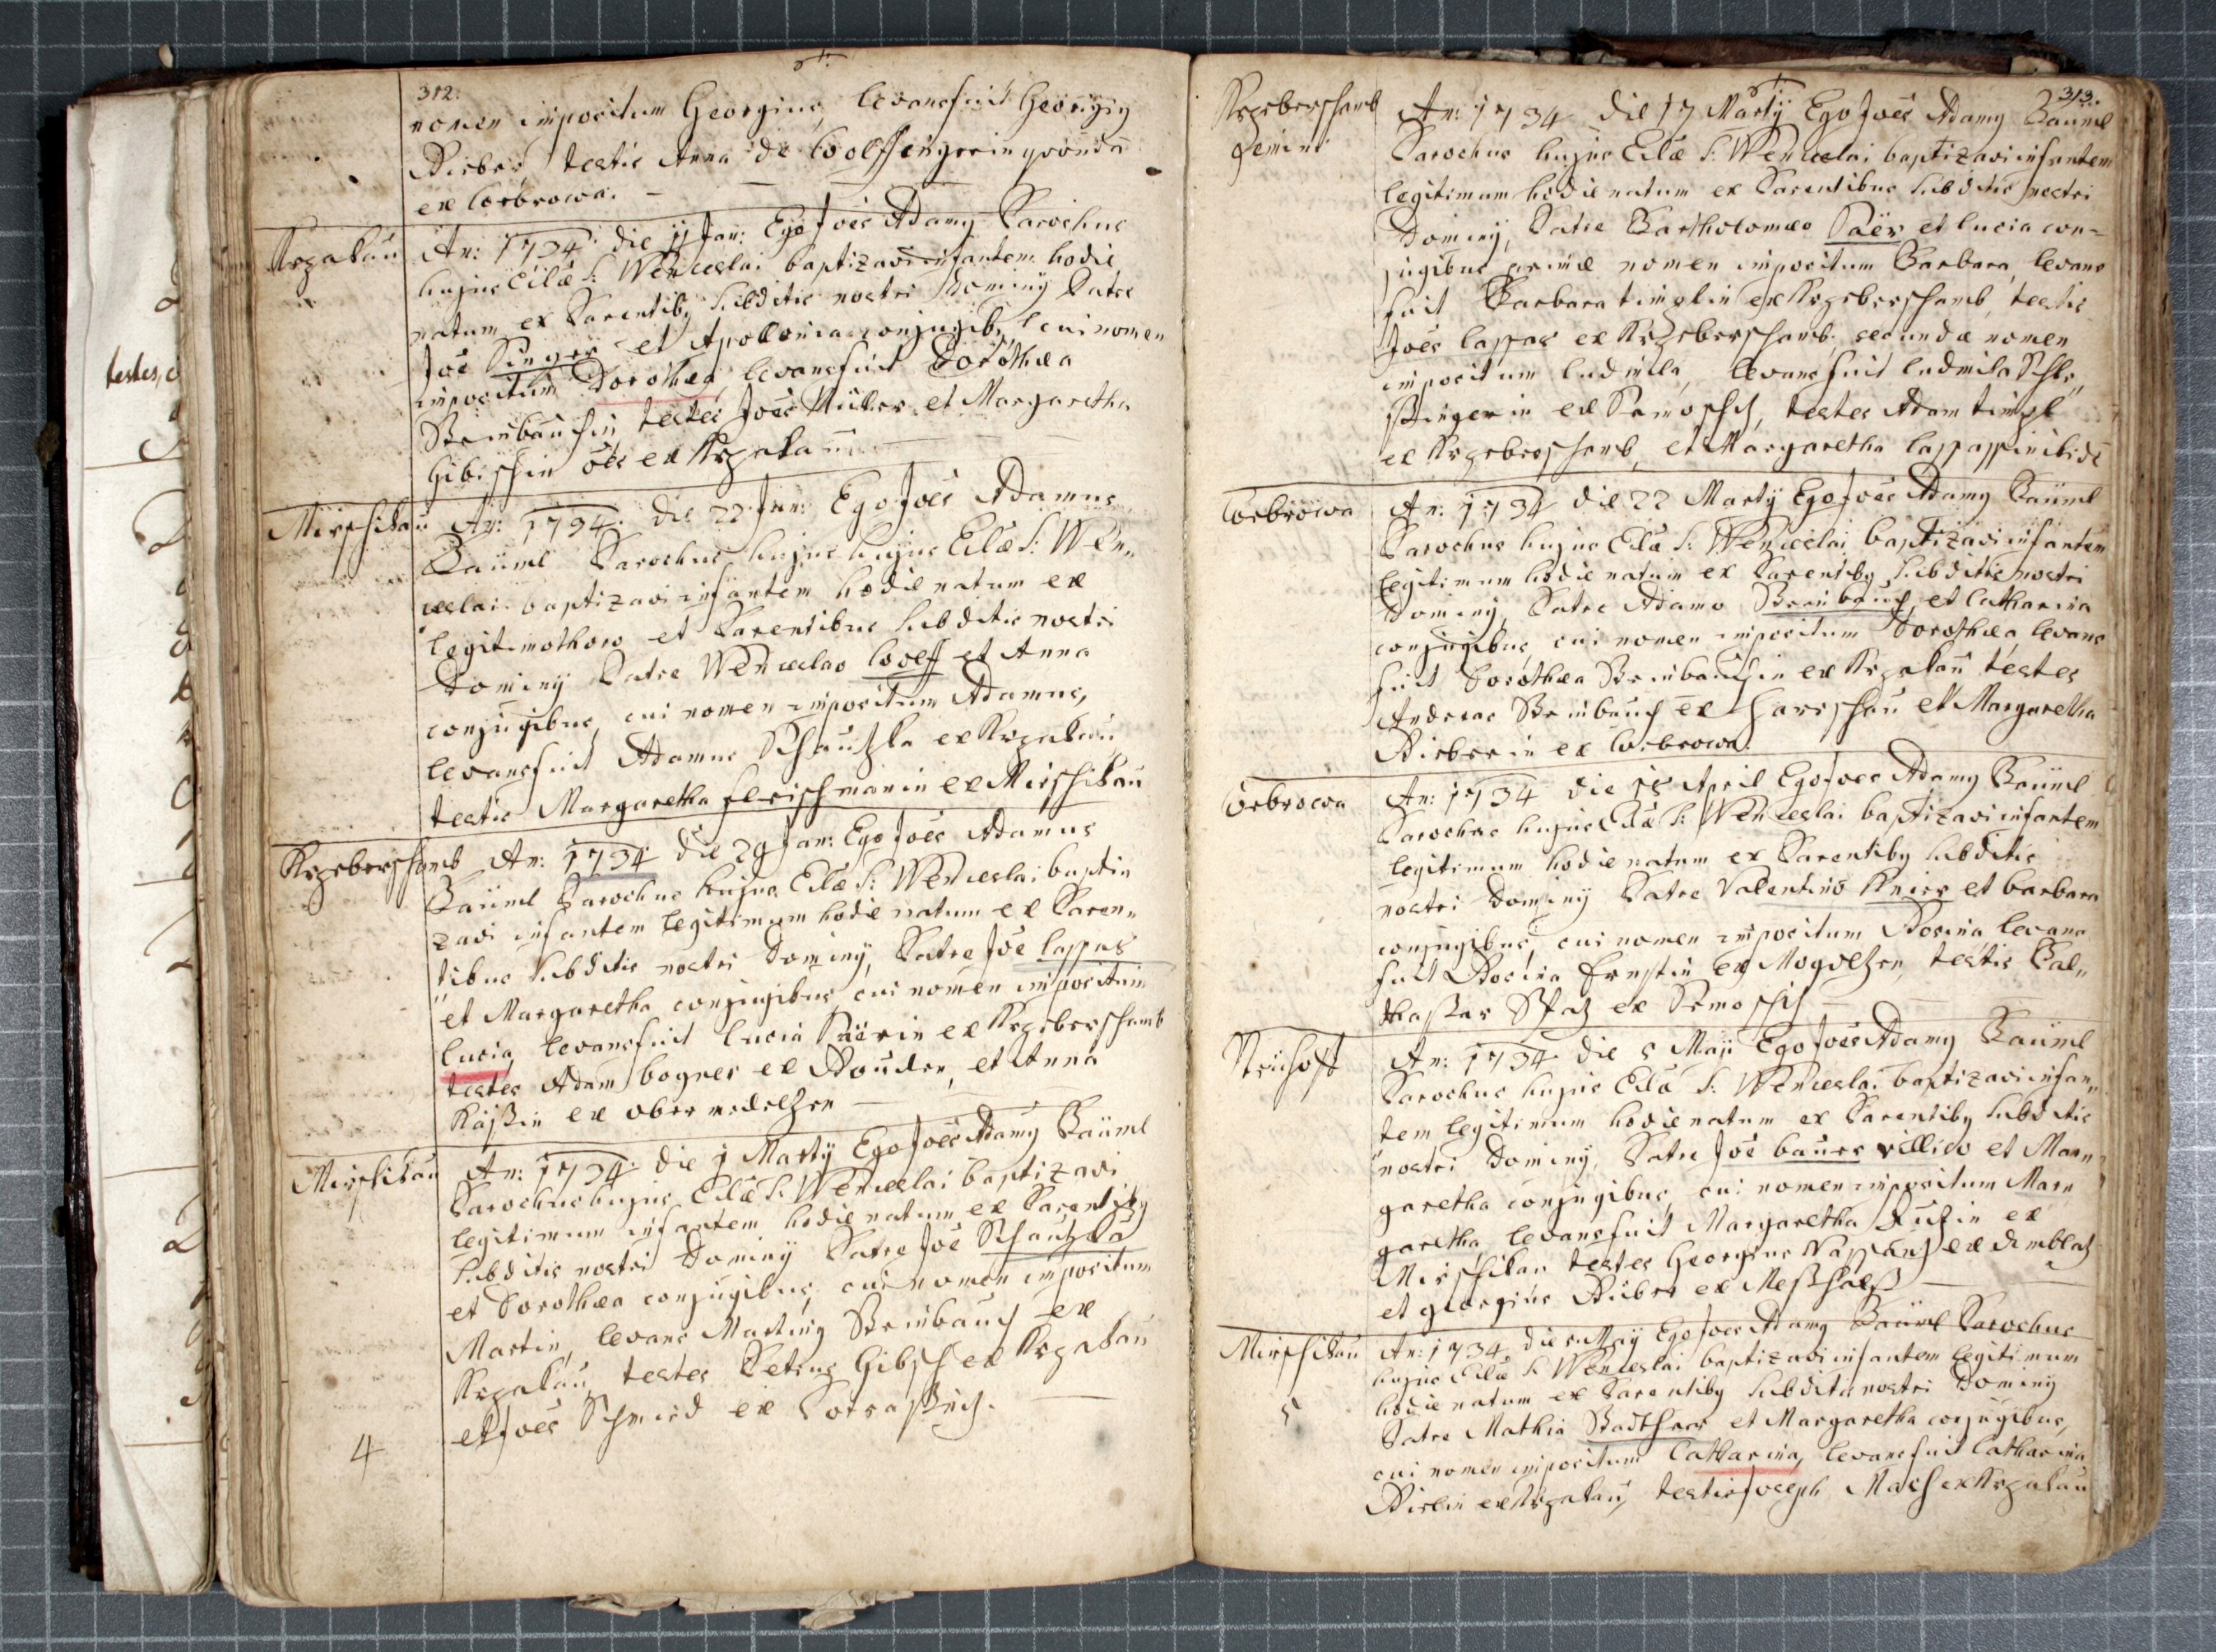 312.
nomen impositum Georgius, levans fuit Georgius
testis Anna de
ex Worbrowa.
Krzakau
An: 1734. die 11 Jan: Ego Joēs Adamg Parochus
hujus Eclæ S: Wenceslai baptizavi infantem hodie
natum ex Parentibg subditis nostri Dominÿ Patre
Joē Singer et Apollonia conjugibg, cui nomen
impositum Dorothea, levans fuit Dorothea
Steinbauchin, testes Joēs Müller et Margaretha
Gibischin oēs ex Krzakau
Mirschikau
An: 1734. die 22 Jan: Ego Joēs Adamus
Baüml Parochus hujus hujus Eclæ S: Wen„
ceslai baptizavi infantem hodie natum ex
legit: mothoro et Parentibus subditis nostri
Dominÿ Patre Wenceslao Woeff et Anna
conjugibus, cui nomen impositum Adamus,
levans fuit Adamus Schautzka ex Krzakau
testis Margaretha fleischmanin ex Mirschikau
Krzeberschamb
An: 1734 die 29 Jan: Ego Joēs Adamus
Baüml Parochus hujus Eclæ S: Wenceslai bapti„
zavi infantem legitimum hodie natum ex Paren„
tibus subditis nostri Dominÿ, Patre Joē lappus
et Margaretha conjugibus, cui nomen impositum
Lucia, levans fuit Lucia Päerin ex Krzeberschamb
testes Adam bogner ex et Anna
ex obermedelzen
Mirschikau
An: 1734. die 1 Martÿ Ego Joēs Adamg Baüml
Parochus hujus Eclæ S: Wenceslai baptizavi
legitimum infantem hodie natum ex Parentibg
subditis nostri Dominÿ Patre Joē Schautzka
et Dorothea conjugibus, cui nomen impositum
Martin, levans Marting Steinbauch ex
Krzakau, testes Petrus Gibsch ex Krzakau
et Joēs Schmied ex
4
313.
Krzeberschamb
Gemini
An: 1734 die 17 Martÿ Ego Joēs Adamg Baüml
Parochus hujus Eclæ S: Wenceslai baptizavi infantem
legitimum hodie natum ex Parentibus subditis nostri
Dominÿ, Patre Bartholomæo Päer et Lucia con=
jugibus, primæ nomen impositum Barbara, levans
fuit Barbara timplin ex Krzeberschamb, testis
Joēs lappas ex Krzeberschamb, secundæ nomen
impositum ludmilla, levans fuit ludmila
ex Semoschitz, testes Adam timpl
ex Krzeberschamb, et Margaretha ibidē
Worbrowa
An: 1734 die 22 Martÿ Ego Joēs Adamg Baüml
Parochus hujus Eclæ S: Wenceslai baptizavi infantem
legitimum hodie natum ex Parentibg subditis nostri
Dominÿ, Patre Adamo Steinbauch, et Catharina
conjugibus, cui nomen impositum Dorothea, levans
fuit Dorothea Steinbauchin ex Krzakau testes
Andreas Steinbauch ex et Margaretha
ex Worbrowa.
Worbrowa
An: 1734 die 18 April Ego Joēs Adamg Baüml
Parochus hujus Eclæ S: Wenceslai baptizavi infantem
legitimum hodie natum ex Parentibg subditis
nostri Dominÿ Patre Valentino Knier et barbara
conjugibus, cui nomen impositum Rosina levans
fuit Rosina Ernstin ex Mogoltzen, testis Bal„
thaßar ex Semoschitz
Neuhoff
An: 1734 die 5 Maji Ego Joēs Adamg Baüml
Parochus hujus Eclæ S: Wenceslai baptizavi infan„
tem legitimum hodie natum ex Parentibg subditis
nostri Dominÿ, Patre Joē bauer villico et Mar„
garetha conjugibus, cui nomen impositum Mar„
garetha, levans fuit Margaretha ex
Mirschikau testes Georgius ex
et georgius ex
Mirschikau
An: 1734 die Maÿ Ego Joēs Adamg Baüml Parochus
hujus Eclæ S: Wenceslai baptizavi infantem legitimum
hodie natum ex Parentibg subditis nostri Dominÿ
Patre Mathia Stadthaar et Margaretha conjugibus,
cui nomen impositum Catharina, levans fuit Catharina
ex Krzakau, testis Joseph ex Krzakau
5
testes,